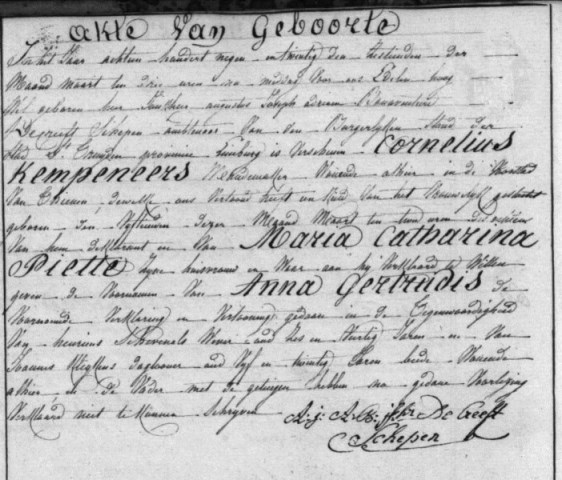 Akte Van Geboorte
In het Jaar achtien honderd negen en twintig den sestienden der
Maand maart ten drie uren na middag Voor ons Edelen hoog
Wel geboren heer augustus Joseph adriaen
Schepen ambtenaer Van den Burgerlyken Stand der
Stad St Truyden provincie Limburg is Verschenen Cornelius
Kempeneers Woonende alhier in de
Van ons Vertoond heeft een Kind Van het Vrouwelyk geslacht
geboren den Vyftienden dezer Maand Maart ten twee uren des
Van hem Deklarant en Van Maria Catharina
Piette zyne huisvrouw en Waer aen hy Verklaerd te Willen
geven de Voornamen Van Anna Gertrudis De
Voornoemde Verklaring en Vertooning gedaen in de Tegenwoordigheid
Van henricus Wever oud Zes en Veertig Jaren en Van
Joannes Daglooner oud Vyf en twintig Jaren beide Woonende
alhier, en de Vader met de getuigen hebben na gedane Voorlezing
Verklaard niet te Kunnen Schryven
Schepen